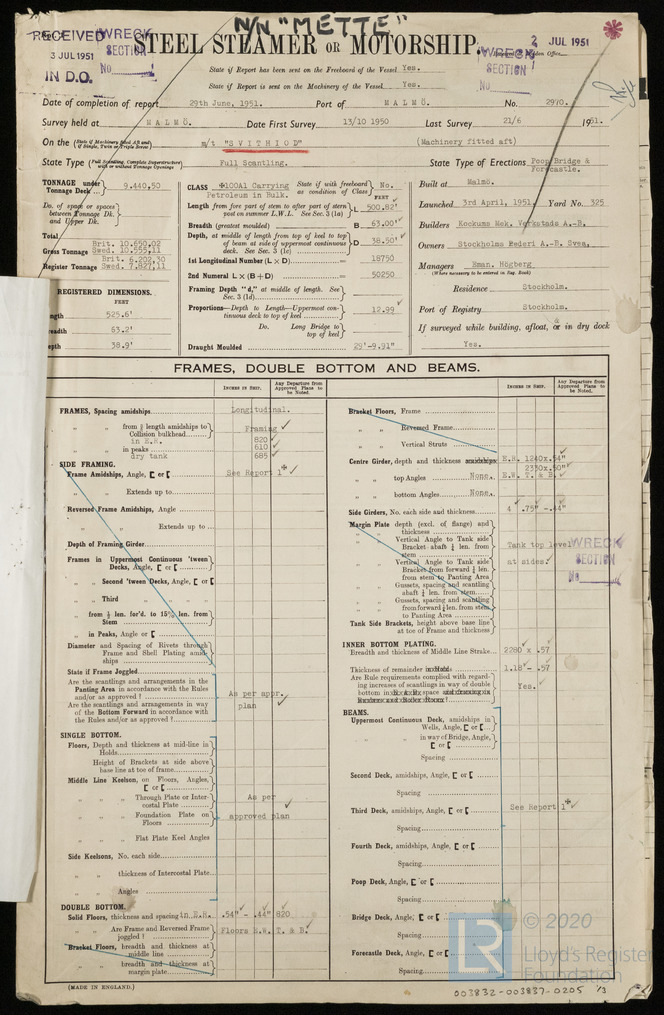 N/N "METTE"
RECEIVED
3 JUL 1951
IN D.O.
WRECK
SECTION
No
STEEL STEAMER OR MOTORSHIP.
WRECK
SECTION
No
2 JUL 1951
State if Report has been sent on the Freeboard of the Vessel Yes.
State if Report is sent on the Machinery of the Vessel Yes.
Date of completion of report 29th June, 1951. Port of MALMÖ. No. 2970.
Survey held at MALMÖ. Date First Survey 13/10 1950 Last Survey 21/6 1951.
On the (State if Machinery fitted Aft and if Single, Twin or Triple Screw) m/t "SVITHIOD" (Machinery fitted aft)
State Type (Full Scantling, Complete Superstructure with or without Tonnage Openings) Full Scantling. State Type of Erections Poop Bridge & Forecastle.
TONNAGE under Tonnage Deck 9.440,50
Do. of space or spaces between Tonnage Dk. and Upper Dk.
Total
Gross Tonnage Brit. 10.650,02 Swed. 10.559,11
Register Tonnage Brit. 6.202,30 Swed. 7.827,11
REGISTERED DIMENSIONS.
FEET
ngth 525.6'
eadth 63.2'
epth 38.9'
CLASS ✠100A1 Carrying Petroleum in Bulk. State if with freeboard as condition of Class No.
FEET
Length from fore part of stem to after part of stern post on summer L.W.L. See Sec. 3 (1a) L 500.82'
Breadth (greatest moulded) B 63.00'
Depth, at middle of length from top of keel to top of beam at side of uppermost continuous deck. See Sec. 3 (1c) D 38.50'
1st Longitudinal Number (L × D) 18750
2nd Numeral L × (B + D) 50250
Framing Depth "d," at middle of length. See Sec. 3 (1d)
Proportions—Depth to Length—Uppermost continuous deck to top of keel 12.99
Do. Long Bridge to top of keel
Draught Moulded 29'-9.91"
Built at Malmö.
Launched 3rd April, 1951. Yard No. 325
Builders Kockums Mek. Verkstads A.-B.
Owners Stockholms Rederi A.-B. Svea.
Managers Eman. Högberg
(Where necessary to be entered in Reg. Book)
Residence Stockholm.
Port of Registry Stockholm.
If surveyed while building, afloat, or in dry dock
Yes.
FRAMES, DOUBLE BOTTOM AND BEAMS.
INCHES IN SHIP. Any Departure from Approved Plans to be Noted.
INCHES IN SHIP. Any Departure from Approved Plans to be Noted.
FRAMES, Spacing amidships Longitudinal.
" " from ⅗ length amidships to Collision bulkhead Framing
in E.R. 820
" " in peaks 610
dry tank 685
SIDE FRAMING.
Frame Amidships, Angle, [ or [ See Report 1*
" " Extends up to
Reversed Frame Amidships, Angle
" " " Extends up to
Depth of Framing Girder
Frames in Uppermost Continuous 'tween Decks, Angle, [ or [
" Second 'tween Decks, Angle, [ or [
" Third " " "
" from ½ len. for'd. to 15% len. from Stem
" in Peaks, Angle or [
Diameter and Spacing of Rivets through Frame and Shell Plating amidships
State if Frame Joggled
Are the scantlings and arrangements in the Panting Area in accordance with the Rules and/or as approved?
Are the scantlings and arrangements in way of the Bottom Forward in accordance with the Rules and/or as approved?
As per appr. plan
SINGLE BOTTOM.
Floors, Depth and thickness at mid-line in Holds
Height of Brackets at side above base line at toe of frame
Middle Line Keelson, on Floors, Angles, [ or [
" " Through Plate or Intercostal Plate As per
" " Foundation Plate on Floors approved plan
" " Flat Plate Keel Angles
Side Keelsons, No. each side
" " thickness of Intercostal Plate
" " Angles
DOUBLE BOTTOM.
Solid Floors, thickness and spacing in E.R. .54" - .44" 820
" " Are Frame and Reversed Frame joggled? Floors E.W. T. & B.
Bracket Floors, breadth and thickness at middle line
" " breadth and thickness at margin plate
Bracket Floors, Frame
" " Reversed Frame
" " Vertical Struts
Centre Girder, depth and thickness amidships E.R. 1240x.54" 2330x.50"
" " top Angles None. E.W. T. & B.
" " bottom Angles None.
Side Girders, No. each side and thickness 4 .75" -.44"
Margin Plate depth (excl. of flange) and thickness
" " Vertical Angle to Tank side Bracket abaft ¼ len. from stem Tank top level
" " Vertical Angle to Tank side Bracket from forward ¼ len. from stem to Panting Area at sides.
" " Gussets, spacing and scantling abaft ¼ len. from stem
" " Gussets, spacing and scantling from forward ¼ len. from stem to Panting Area
Tank Side Brackets, height above base line at toe of Frame and thickness
WRECK
SECTION
No
INNER BOTTOM PLATING.
Breadth and thickness of Middle Line Strake 2280 x .57
Thickness of remainder in holds 1.18" .57
Are Rule requirements complied with regarding increases of scantlings in way of double bottom in space Yes.
BEAMS.
Uppermost Continuous Deck, amidships in Wells, Angle, [ or [
" " in way of Bridge, Angle, [ or [
Spacing
Second Deck, amidships, Angle, [ or [
Spacing
Third Deck, amidships, Angle, [ or [ See Report 1*
Spacing
Fourth Deck, amidships, Angle, [ or [
Spacing
Poop Deck, Angle [ or [
Spacing
Bridge Deck, Angle, [ or [
Spacing
Forecastle Deck, Angle, [ or [
Spacing
(MADE IN ENGLAND.)
LR © 2020
Lloyd's Register
Foundation
003832-003837-0205 1/3